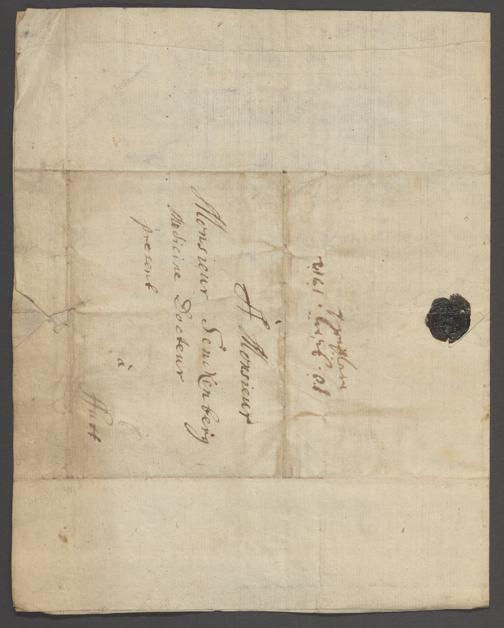 À Monsieur
Monsieur Senckenberg
Medicinæ Docteur
present
à
ffurt